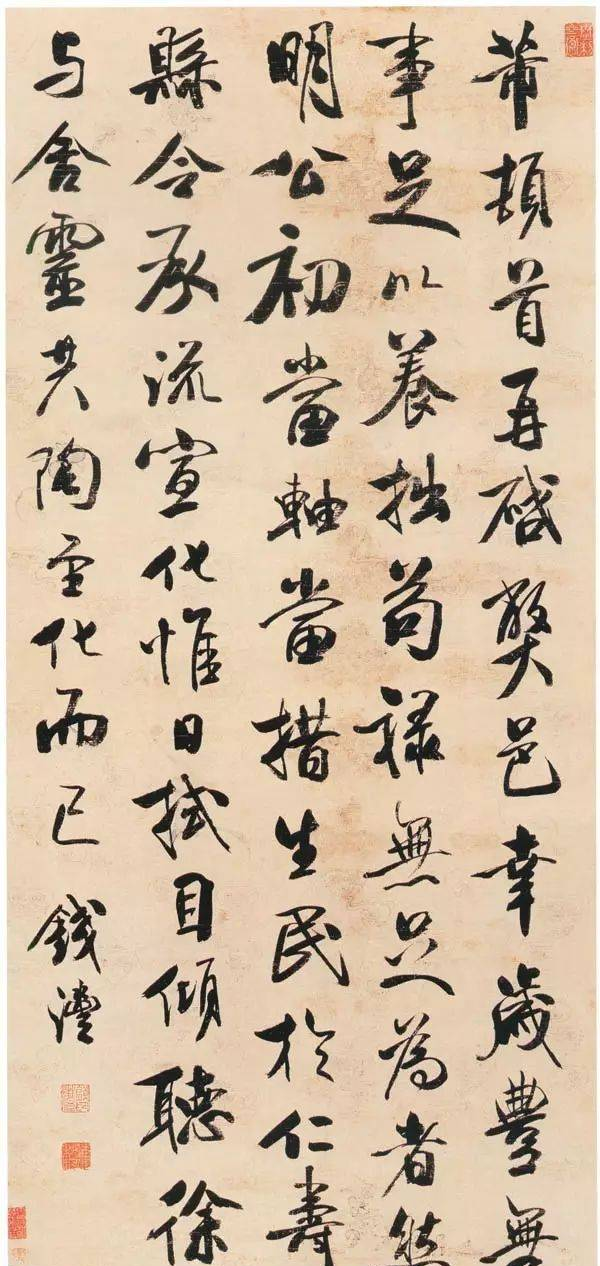 芾頓首再啟獘邑幸歲豐無
事足以養拙苟祿無足為者然
明公初當軸當措生民於仁壽
縣令承流宣化惟日拭目傾聽徐
与含靈共陶至化而已 錢灃